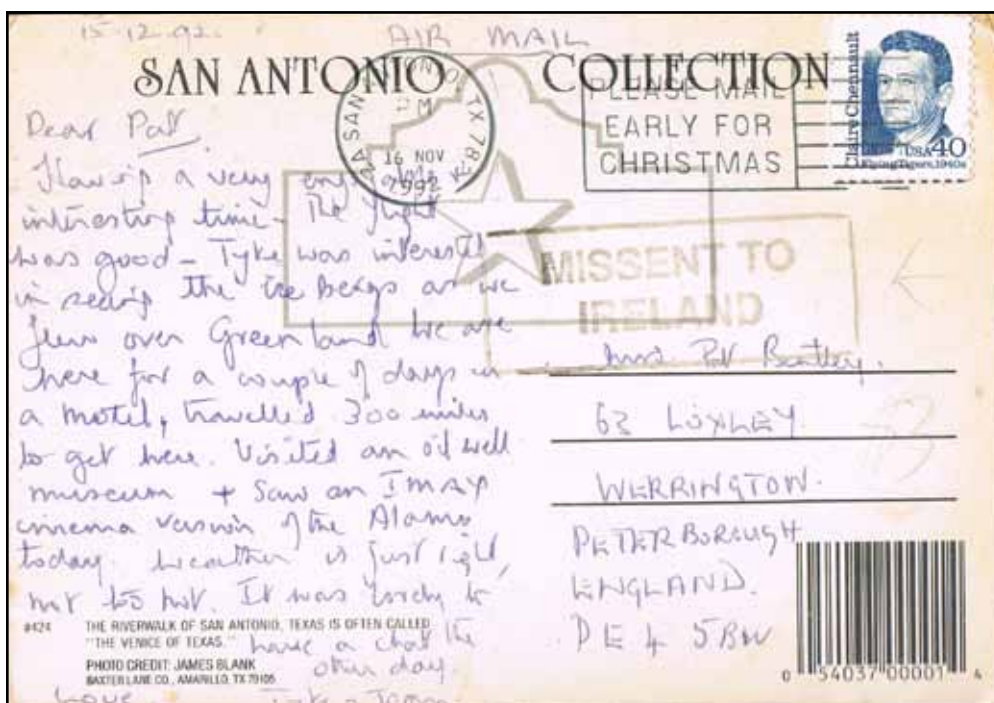 15-12-92.
AIR MAIL
SAN ANTONIO COLLECTION
SAN ANTONIO, TX
PM
16 NOV
1992
PLEASE MAIL
EARLY FOR
CHRISTMAS
Claire Chennault
USA 40
Flying Tigers, 1940s
MISSENT TO
IRELAND
Dear Pat,
Having a very
interesting time - The flight
was good - Tyke was interested
in seeing the Ice Bergs as we
flew over Greenland We are
here for a couple of days in
a motel, travelled 300 miles
to get here. Visited an oil well
museum + Saw an IMAX
cinema version of the Alamo
today. Weather is just right,
not too hot. It was lovely to
have a chat the
other day.
Love Tyke +
Mrs. Pat Bentley.
63 LOXLEY
WERRINGTON.
PETERBOROUGH
ENGLAND.
PE4 5BW
#424 THE RIVERWALK OF SAN ANTONIO, TEXAS IS OFTEN CALLED
"THE VENICE OF TEXAS."
PHOTO CREDIT: JAMES BLANK
BAXTER LANE CO., AMARILLO, TX 79105
0 54037 00001 4